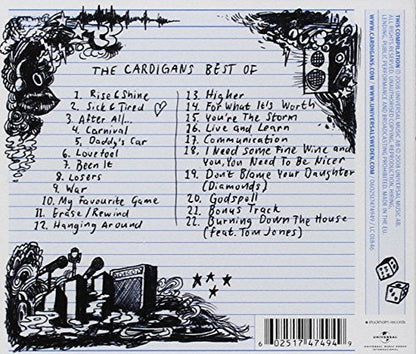 THE CARDIGANS BEST OF
1. Rise & Shine
2. Sick & Tired
3. After All...
4. Carnival
5. Daddy's Car
6. Lovefool
7. Been It
8. Losers
9. War
10. My Favourite Game
11. Erase/Rewind
12. Hanging Around
13. Higher
14. For What It's Worth
15. You're The Storm
16. Live and Learn
17. Communication
18. I Need Some Fine Wine and
You, You Need To Be Nicer
19. Don't Blame Your Daughter
(Diamonds)
20. Godspell
21. Bonus Track
22. Burning Down The House
(feat. Tom Jones)
THIS COMPILATION ℗ 2008 UNIVERSAL MUSIC AB. © 2008 UNIVERSAL MUSIC AB.
ALL RIGHTS RESERVED. UNAUTHORISED COPYING, REPRODUCTION, HIRING,
LENDING, PUBLIC PERFORMANCE AND BROADCASTING PROHIBITED. MADE IN THE EU.
WWW.CARDIGANS.COM / WWW.UNIVERSALSWEDEN.COM
LC 01846
6 02517 47494 9
stockholm records
UNIVERSAL